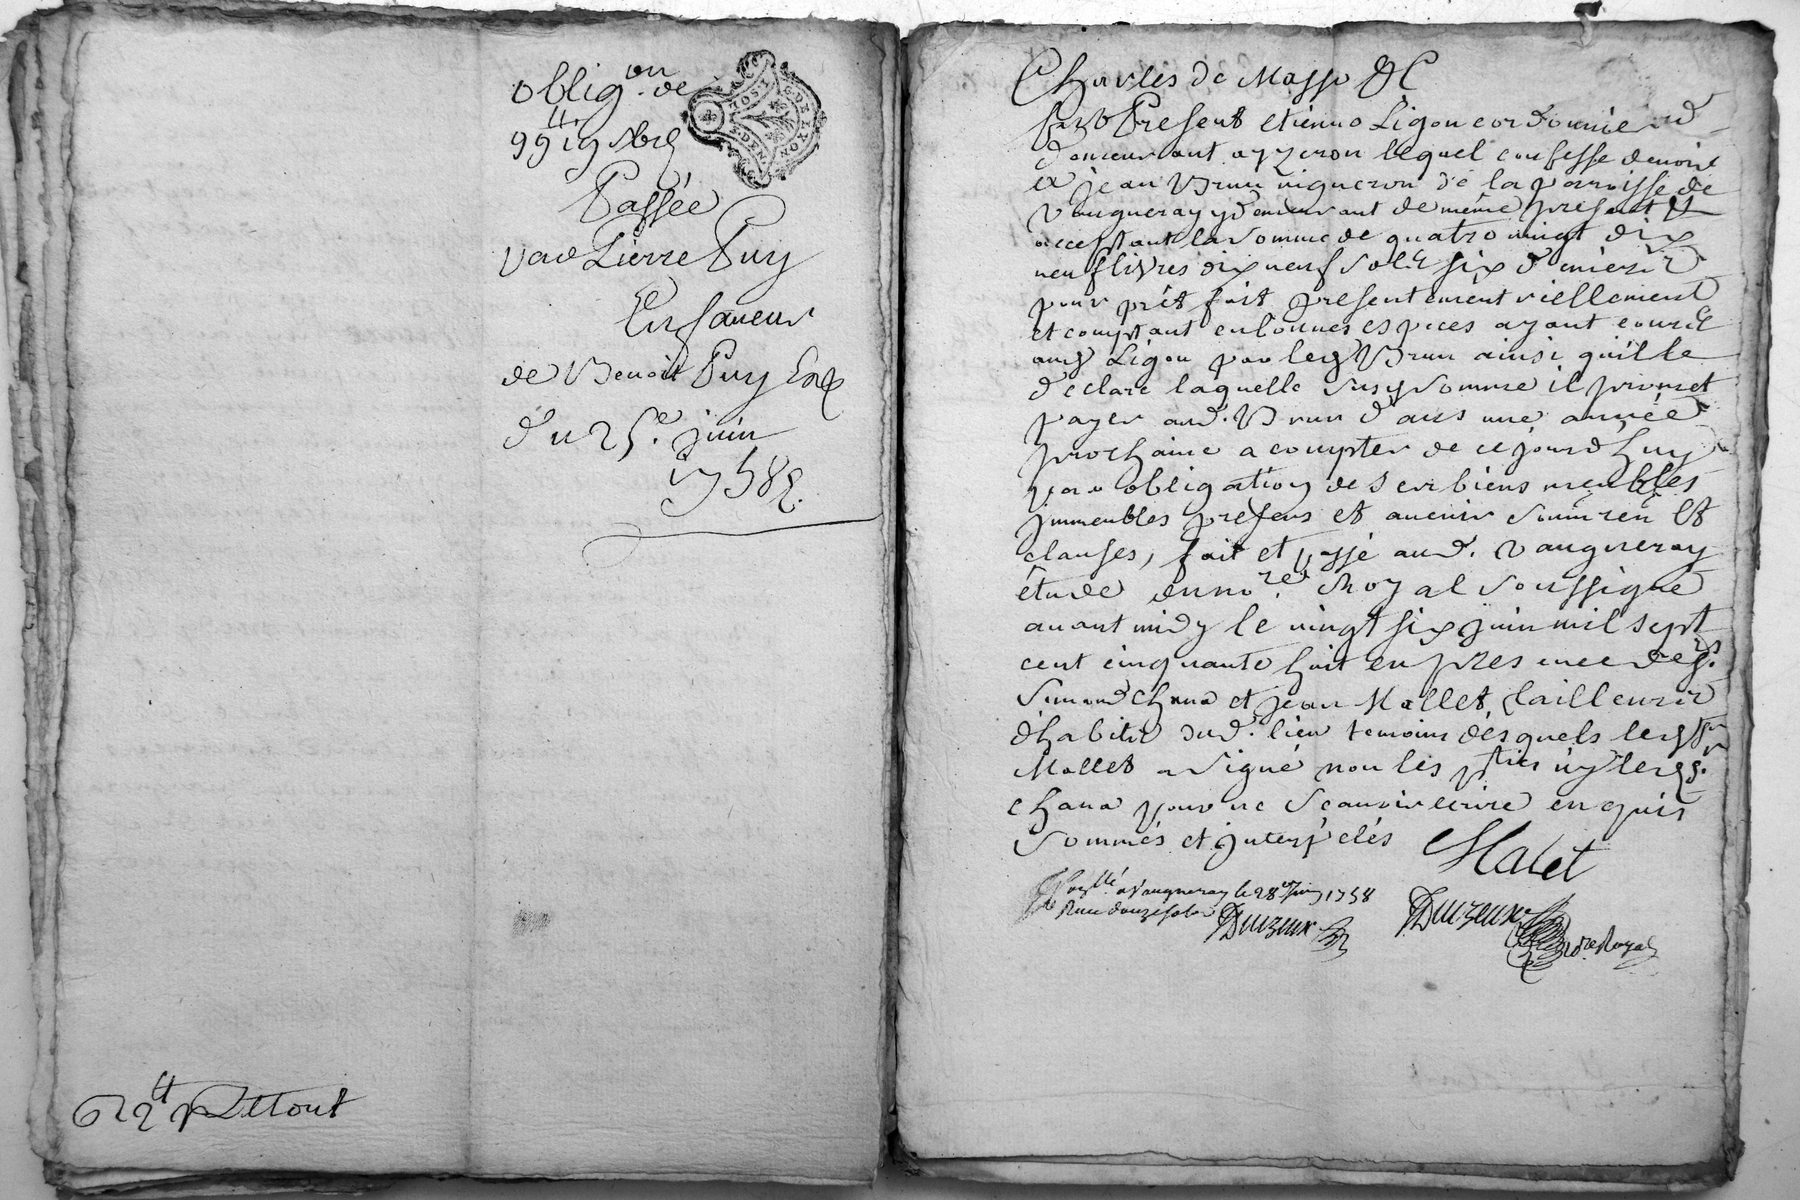 oblig.on de
99ll 19s
Passée
par Pierre Puy
En faveur
de Benoit Puy
du 25.e juin
1758.
GENER
LYON
622ll pr Le tout
Charles de Masso &C
Present etienne Ligou cordonnier
demeurant ayzeron lequel confesse devoir
a jean Brun vigneron de la parroisse de
Vaugneray y demeurant de même present et
acceptant la somme de quatre vingt dix
neuf livres dix neuf sols six deniers
pour prêt fait presentement réellement
et comptant en bonnes especes ayant cours
aud Ligou par led Brun ainsi qu'il le
declare laquelle susd somme il promet
payer aud. Brun dans une année
prochaine a compter de cejourdhuy
par obligation de ses biens meubles
jmmeubles presens et avenir soum ren et
clauses, fait et passé aud. Vaugneray
étude du no.re Royal soussigné
avant midy le vingt six juin mil sept
cent cinquante huit en presence de s.rs
Simond Chana et jean Mallet, tailleurs
d'habits dud. lieu temoins desquels led sr
Mallet a signé non les pties ny led s.
Chana pour ne scavoir ecrire enquis
sommés et jnterpelés
Malet
Con.llé a Vaugneray le 28 juin 1758
Reçu douze sols
Duzeux
Duzeux
no.re Royal